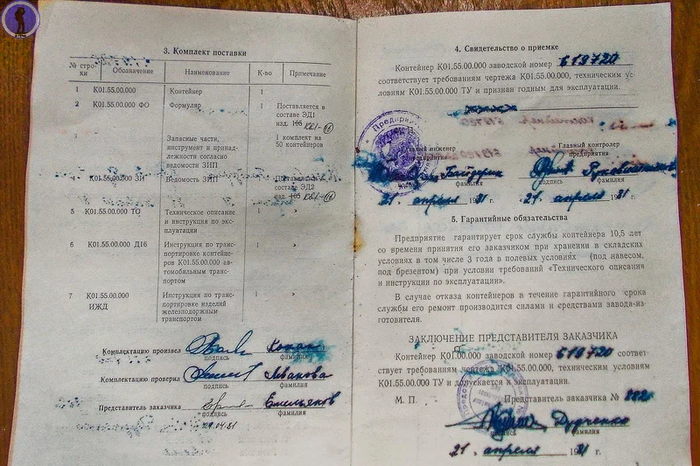 3. Комплект поставки
№ строки Обозначение Наименование К-во Примечание
1 К01.55.00.000 Контейнер 1
2 К01.55.00.000 ФО Формуляр 1 Поставляется в
составе ЭД1
изд.
Запасные части,
инструмент и принад-
лежности согласно
ведомости ЗИП
1 комплект на
50 контейнеров
К01.55.00.000 ЗИ Ведомость ЗИП Поставляется в
составе ЭД2
изд.
5 К01.55.00.000 ТО Техническое описание
и инструкция по экс-
плуатации 1 »
6 К01.55.00.000 Д16 Инструкция по транс-
портировке контейне-
ров К01.55.00.000 ав-
томобильным транс-
портом 1 »
7 К01.55.00.000
ИЖД
Инструкция по транс-
портировке изделий
железнодорожным
транспортом 1 »
Комплектацию произвел
подпись фамилия
Комплектацию проверил Иванова
подпись фамилия
Представитель заказчика Емельянов
подпись фамилия
29.04.81
4. Свидетельство о приемке
Контейнер К01.55.00.000 заводской номер 619720
соответствует требованиям чертежа К01.55.00.000, техническим ус-
ловиям К01.55.00.000 ТУ и признан годным для эксплуатации.
Главный инженер
предприятия
Главный контролер
предприятия
фамилия подпись фамилия
21 апреля 1981 21 апреля 1981
5. Гарантийные обязательства
Предприятие гарантирует срок службы контейнера 10,5 лет
со времени принятия его заказчиком при хранении в складских
условиях в том числе 3 года в полевых условиях (под навесом,
под брезентом) при условии требований «Технического описания
и инструкции по эксплуатации».
В случае отказа контейнеров в течение гарантийного срока
службы его ремонт производится силами и средствами завода-из-
готовителя.
ЗАКЛЮЧЕНИЕ ПРЕДСТАВИТЕЛЯ ЗАКАЗЧИКА
Контейнер К01.00.00.000 заводской номер 619720 соответ-
ствует требованиям чертежа К01.55.00.000, техническим условиям
К01.55.00.000 ТУ и допускается к эксплуатации.
М. П. Представитель заказчика № 882
Дудченко
подпись фамилия
21 апреля 1981